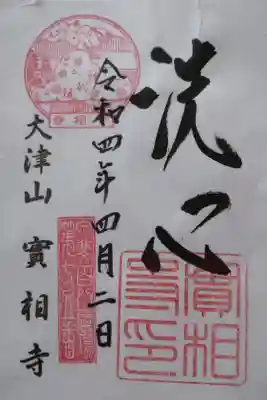 洗心
令和四年四月二日
大津山 實相寺
實相
寺印